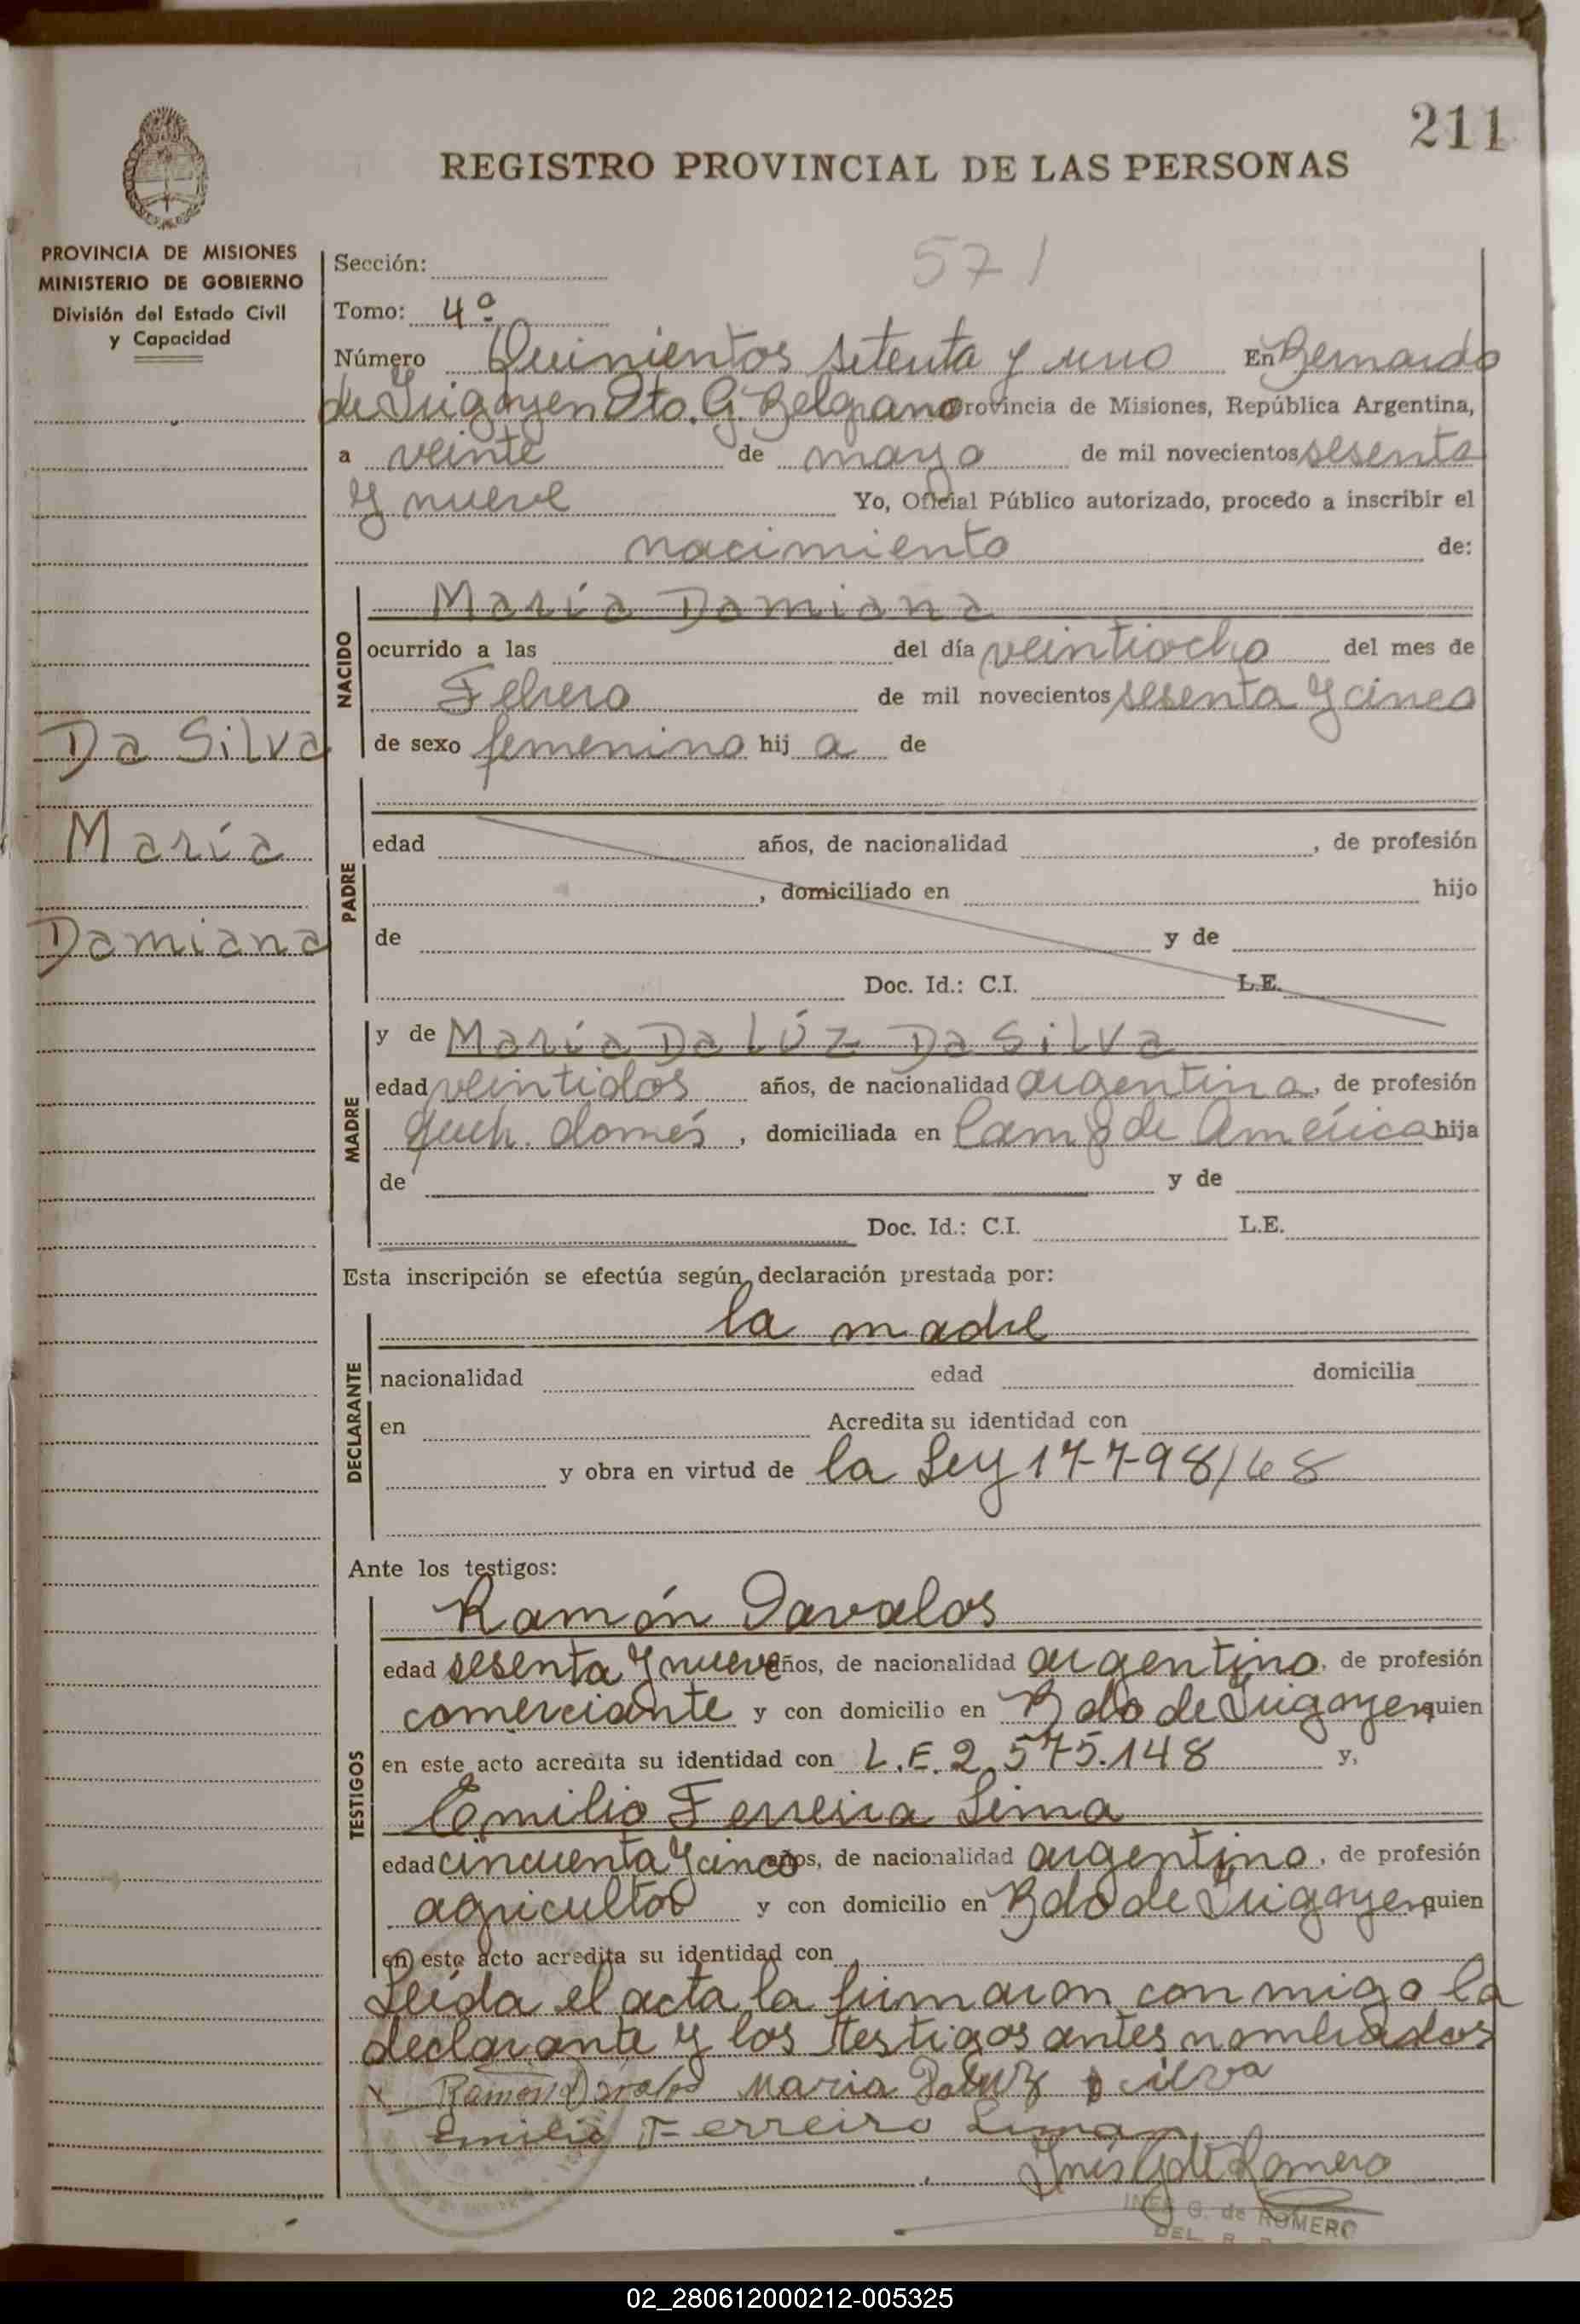 211
REGISTRO PROVINCIAL DE LAS PERSONAS
PROVINCIA DE MISIONES
MINISTERIO DE GOBIERNO
División del Estado Civil
y Capacidad
571
Sección:
Tomo: 4º
Número Quinientos setenta y uno En Bernardo
de Irigoyen Dto. G. Belgrano Provincia de Misiones, República Argentina,
a veinte de mayo de mil novecientos sesenta
y nueve Yo, Oficial Público autorizado, procedo a inscribir el
nacimiento de:
Da Silva
María
Damiana
NACIDO
María Damiana
ocurrido a las del día veintiocho del mes de
Febrero de mil novecientos sesenta y cinco
de sexo femenino hij a de
PADRE
edad años, de nacionalidad , de profesión
, domiciliado en hijo
de y de
Doc. Id.: C.I. L.E.
MADRE
y de María Da Lúz Da Silva
edad veintidos años, de nacionalidad argentina, de profesión
queh. domés, domiciliada en Camp de América hija
de y de
Doc. Id.: C.I. L.E.
Esta inscripción se efectúa según declaración prestada por:
DECLARANTE
la madre
nacionalidad edad domicilia
en Acredita su identidad con
y obra en virtud de la Ley 17-798/68
Ante los testigos:
TESTIGOS
Ramón Davalos
edad sesenta y nueve años, de nacionalidad argentino, de profesión
comerciante y con domicilio en Bdo de Irigoyen quien
en este acto acredita su identidad con L.E. 2.575.148 y,
Emilio Ferreira Lima
edad cincuenta y cinco años, de nacionalidad argentino, de profesión
agricultor y con domicilio en Bdo de Irigoyen quien
en este acto acredita su identidad con
Leída el acta, la firmaron conmigo la
declarante y los testigos antes nombrados
x Ramon Davalos Maria Daluz D silva
Emilio Ferreira Lima
Inés G. de Romero
INES G. de ROMERO
DEL. R. P.
02_280612000212-005325